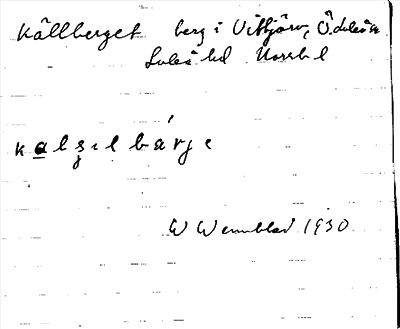 Källberget berg i Vittjärv, Ö. Luleå sn
Luleå td Norrb l
k a l ş ı l b á r j e
W Wennblad 1930